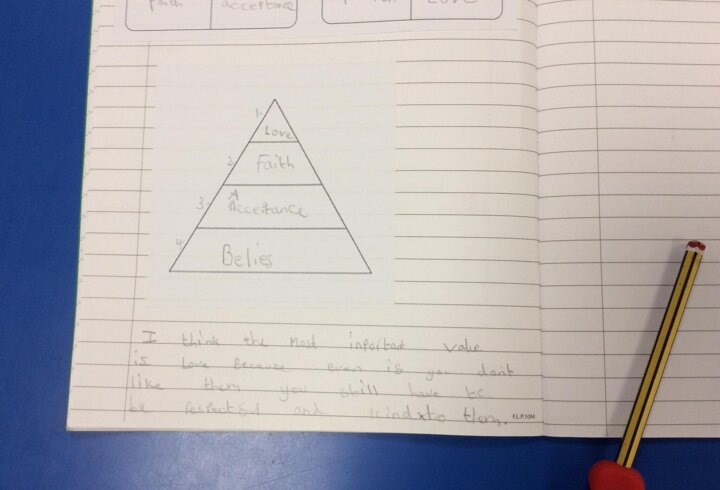 faith acceptance Love
1. Love
2. Faith
3. Acceptance
4. Belies
I think the Most inportad value
is Love Because even is you don't
like them you still have to
be respectful and kind to them.
F.L.P.10M